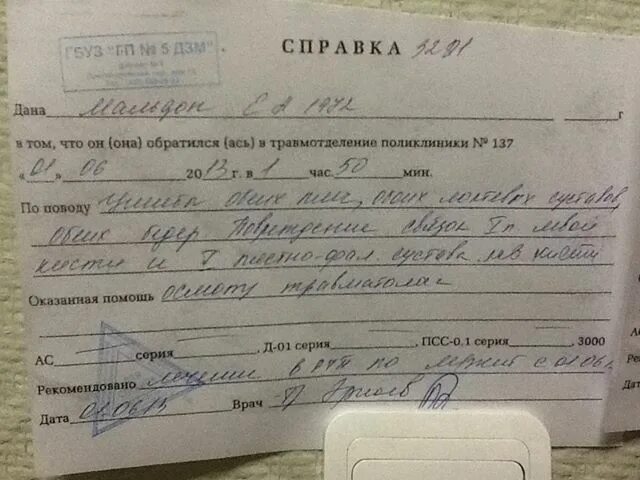 ГБУЗ "ГП № 5 ДЗМ"
СПРАВКА 3291
Дана Мальдон С А 1972 г
в том, что он (она) обратился (ась) в травмотделение поликлиники № 137
"01" 06 2013 г. в 1 час. 50 мин.
По поводу Ушибы обеих плеч, обоих локтевых суставов,
обеих бедер Повреждение связок I п левой
кисти и V пястно-фал. сустава лев кисти
Оказанная помощь осмотр травматолога
АС серия Д-01 серия ПСС-0,1 серия 3000
Рекомендовано лечение в РТП по м/жит с 01.06
Дата 01.06.13 Врач